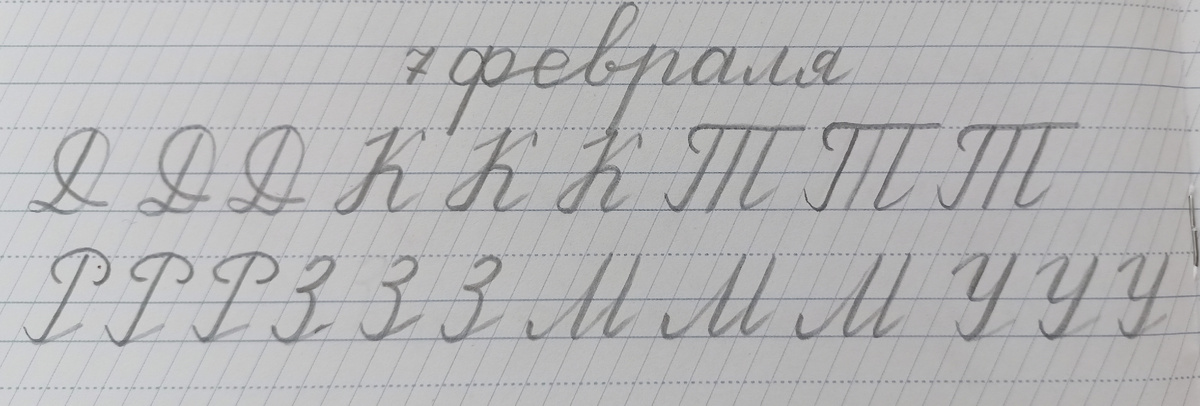 7 февраля
Д Д Д К К К Т Т Т
Р Р Р З З З М М М У У У